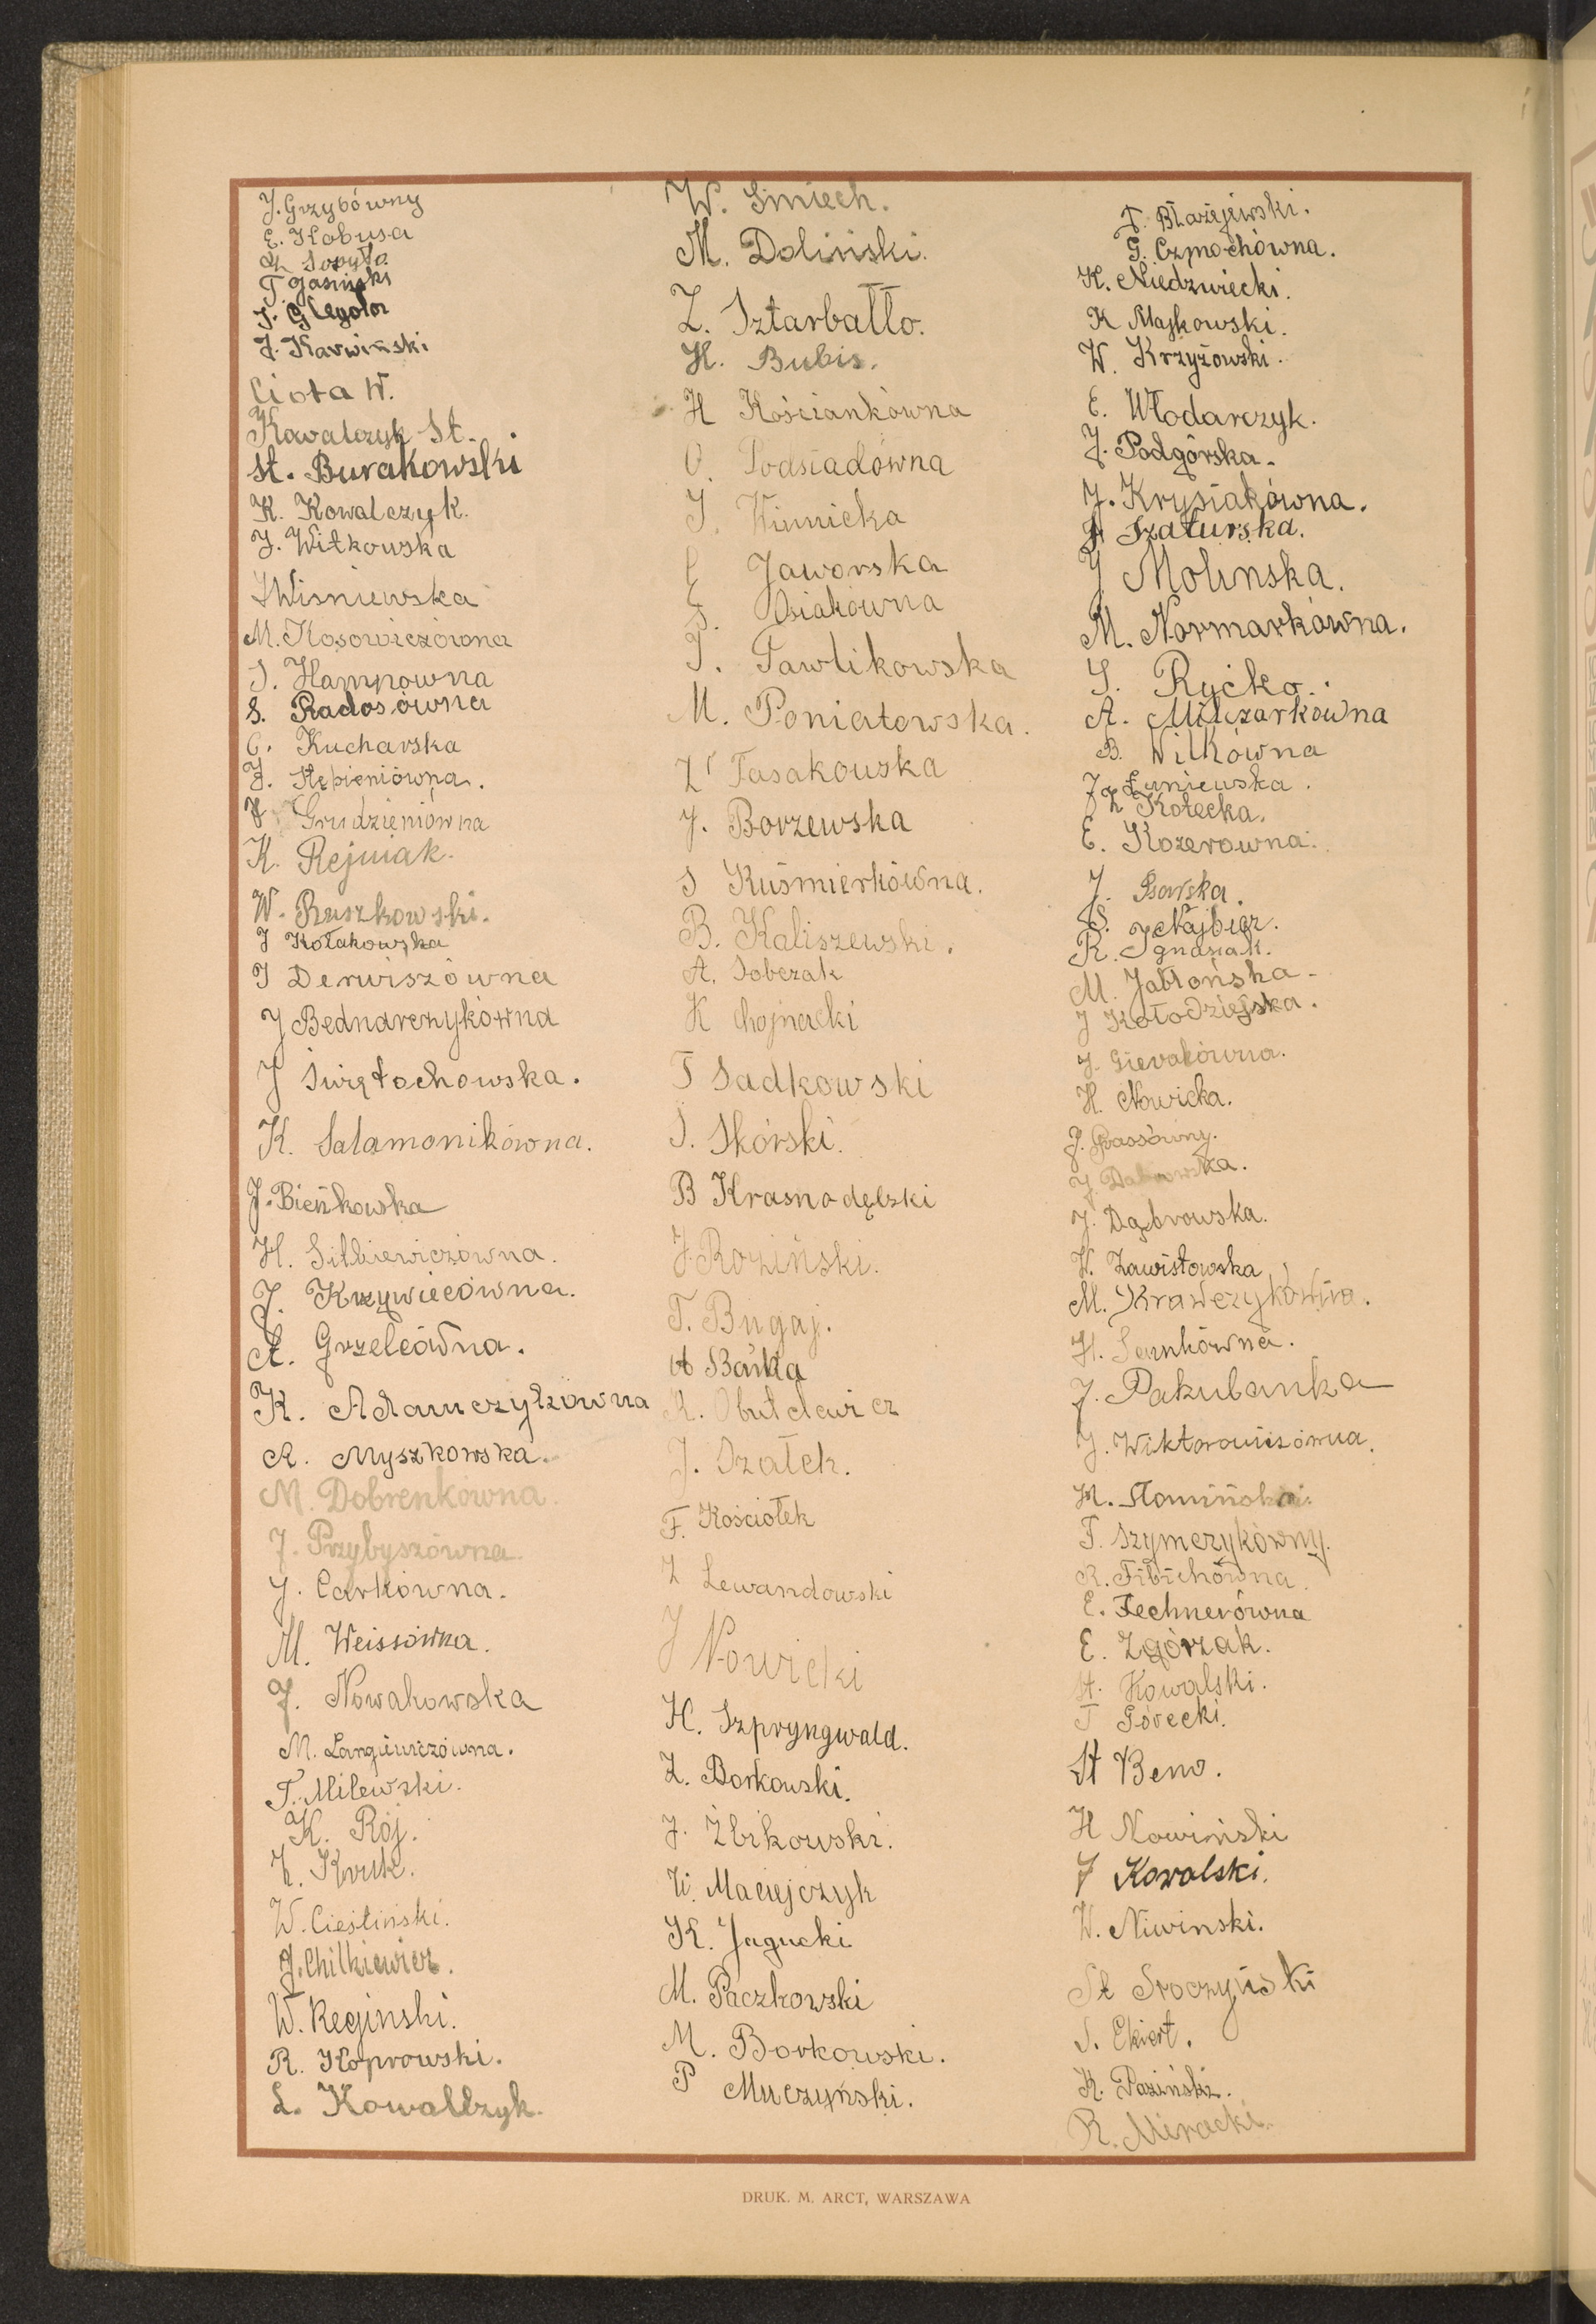 J. Grzybówny
E. Kobusa
Soryła
T. Jasiński
J. Glegoła
J. Karwiński
Ciota W.
Kawalczyk St.
St. Burakowski
K. Kowalczyk.
J. Witkowska
Wisniewska
M. Kosowiczówna
J. Hampowna
S. Radosówna
C. Kucharska
J. Stępieniówna.
Grudzieniówna
K. Rejniak.
W. Ruszkowski.
J Kołakowska
J Derwiszówna
J Bednarczykówna
J Świętochowska.
K. Salamonikówna.
J. Bieńkowska
H. Sitkiewiczówna.
J. Krzywiecówna.
A. Grzelcówna.
K. Adamczykówna
A. Myszkowska.
M. Dobrenkówna.
J. Przybyszówna
J. Carkówna.
M. Weissówna.
J. Nowakowska
M. Langiewiczówna.
T. Milewski.
K. Rój.
Z. Kruk.
W. Cieśliński.
J. Chilkiewicz.
W. Reginski.
R. Koprowski.
L. Kowalczyk.
W. Smiech.
M. Doliński.
Z. Sztarbałło.
H. Bubis.
H Kościankówna
O. Podsiadówna
J. Winnicka
E Jaworska
S. Osiakówna
J. Pawlikowska
M. Poniatowska.
Z. Tasakowska
J. Borzewska
S Kuśmierkówna.
B. Kaliszewski.
A. Sobczak
K Chojnacki
T Sadkowski
S. Skórski.
B Krasnodębski
J. Roziński.
T. Bugaj.
A Bańka
K. Obutelewicz
J. Szałek.
F. Kościołek
Z Lewandowski
J Nowicki
H. Szpryngwald.
Z. Borkowski.
J. Żbikowski.
W. Maciejczyk
K. Jagucki
M. Paczkowski
M. Borkowski.
P Muczyński.
T. Błażejewski.
G. Czmochówna.
K. Niedzwiecki.
K Majkowski.
W. Krzyżowski.
E. Włodarczyk.
J. Podgórska.
J. Krysiakówna.
Szaturska.
J Molinska.
M. Normarkówna.
S. Ryćko.
A. Milczarkówna
B. Wilkówna
J. Łuniewska.
Z Kotecka.
E. Kozerowna.
J. Psarska.
S. Najbier.
R. Ignasiak.
M. Jabłońska.
J Kołodziejska.
J. Sierakówna.
H. Nowicka.
J. Grassówny.
J. Dabrowska.
J. Dąbrowska.
W. Zawistowska
M. Krawczykówna.
H. Senkówna.
J. Pakulanka
J. Wiktorowiczówna.
M. Słomińska.
T. Szymczykówny.
R. Fibichówna.
E. Technerówna
E. Zgórzak.
St. Kowalski.
T Górecki.
St Benw.
H Nowiński
J Kowalski.
W. Niwinski.
St Sroczyński
S. Ekiert.
K. Paziński.
R. Miracki.
DRUK. M. ARCT, WARSZAWA